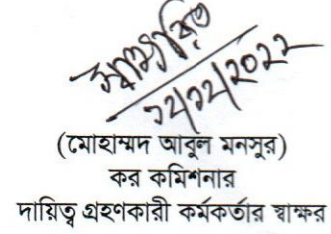 স্বাক্ষরিত
১২/১২/২০২২
(মোহাম্মদ আবুল মনসুর)
কর কমিশনার
দায়িত্ব গ্রহণকারী কর্মকর্তার স্বাক্ষর